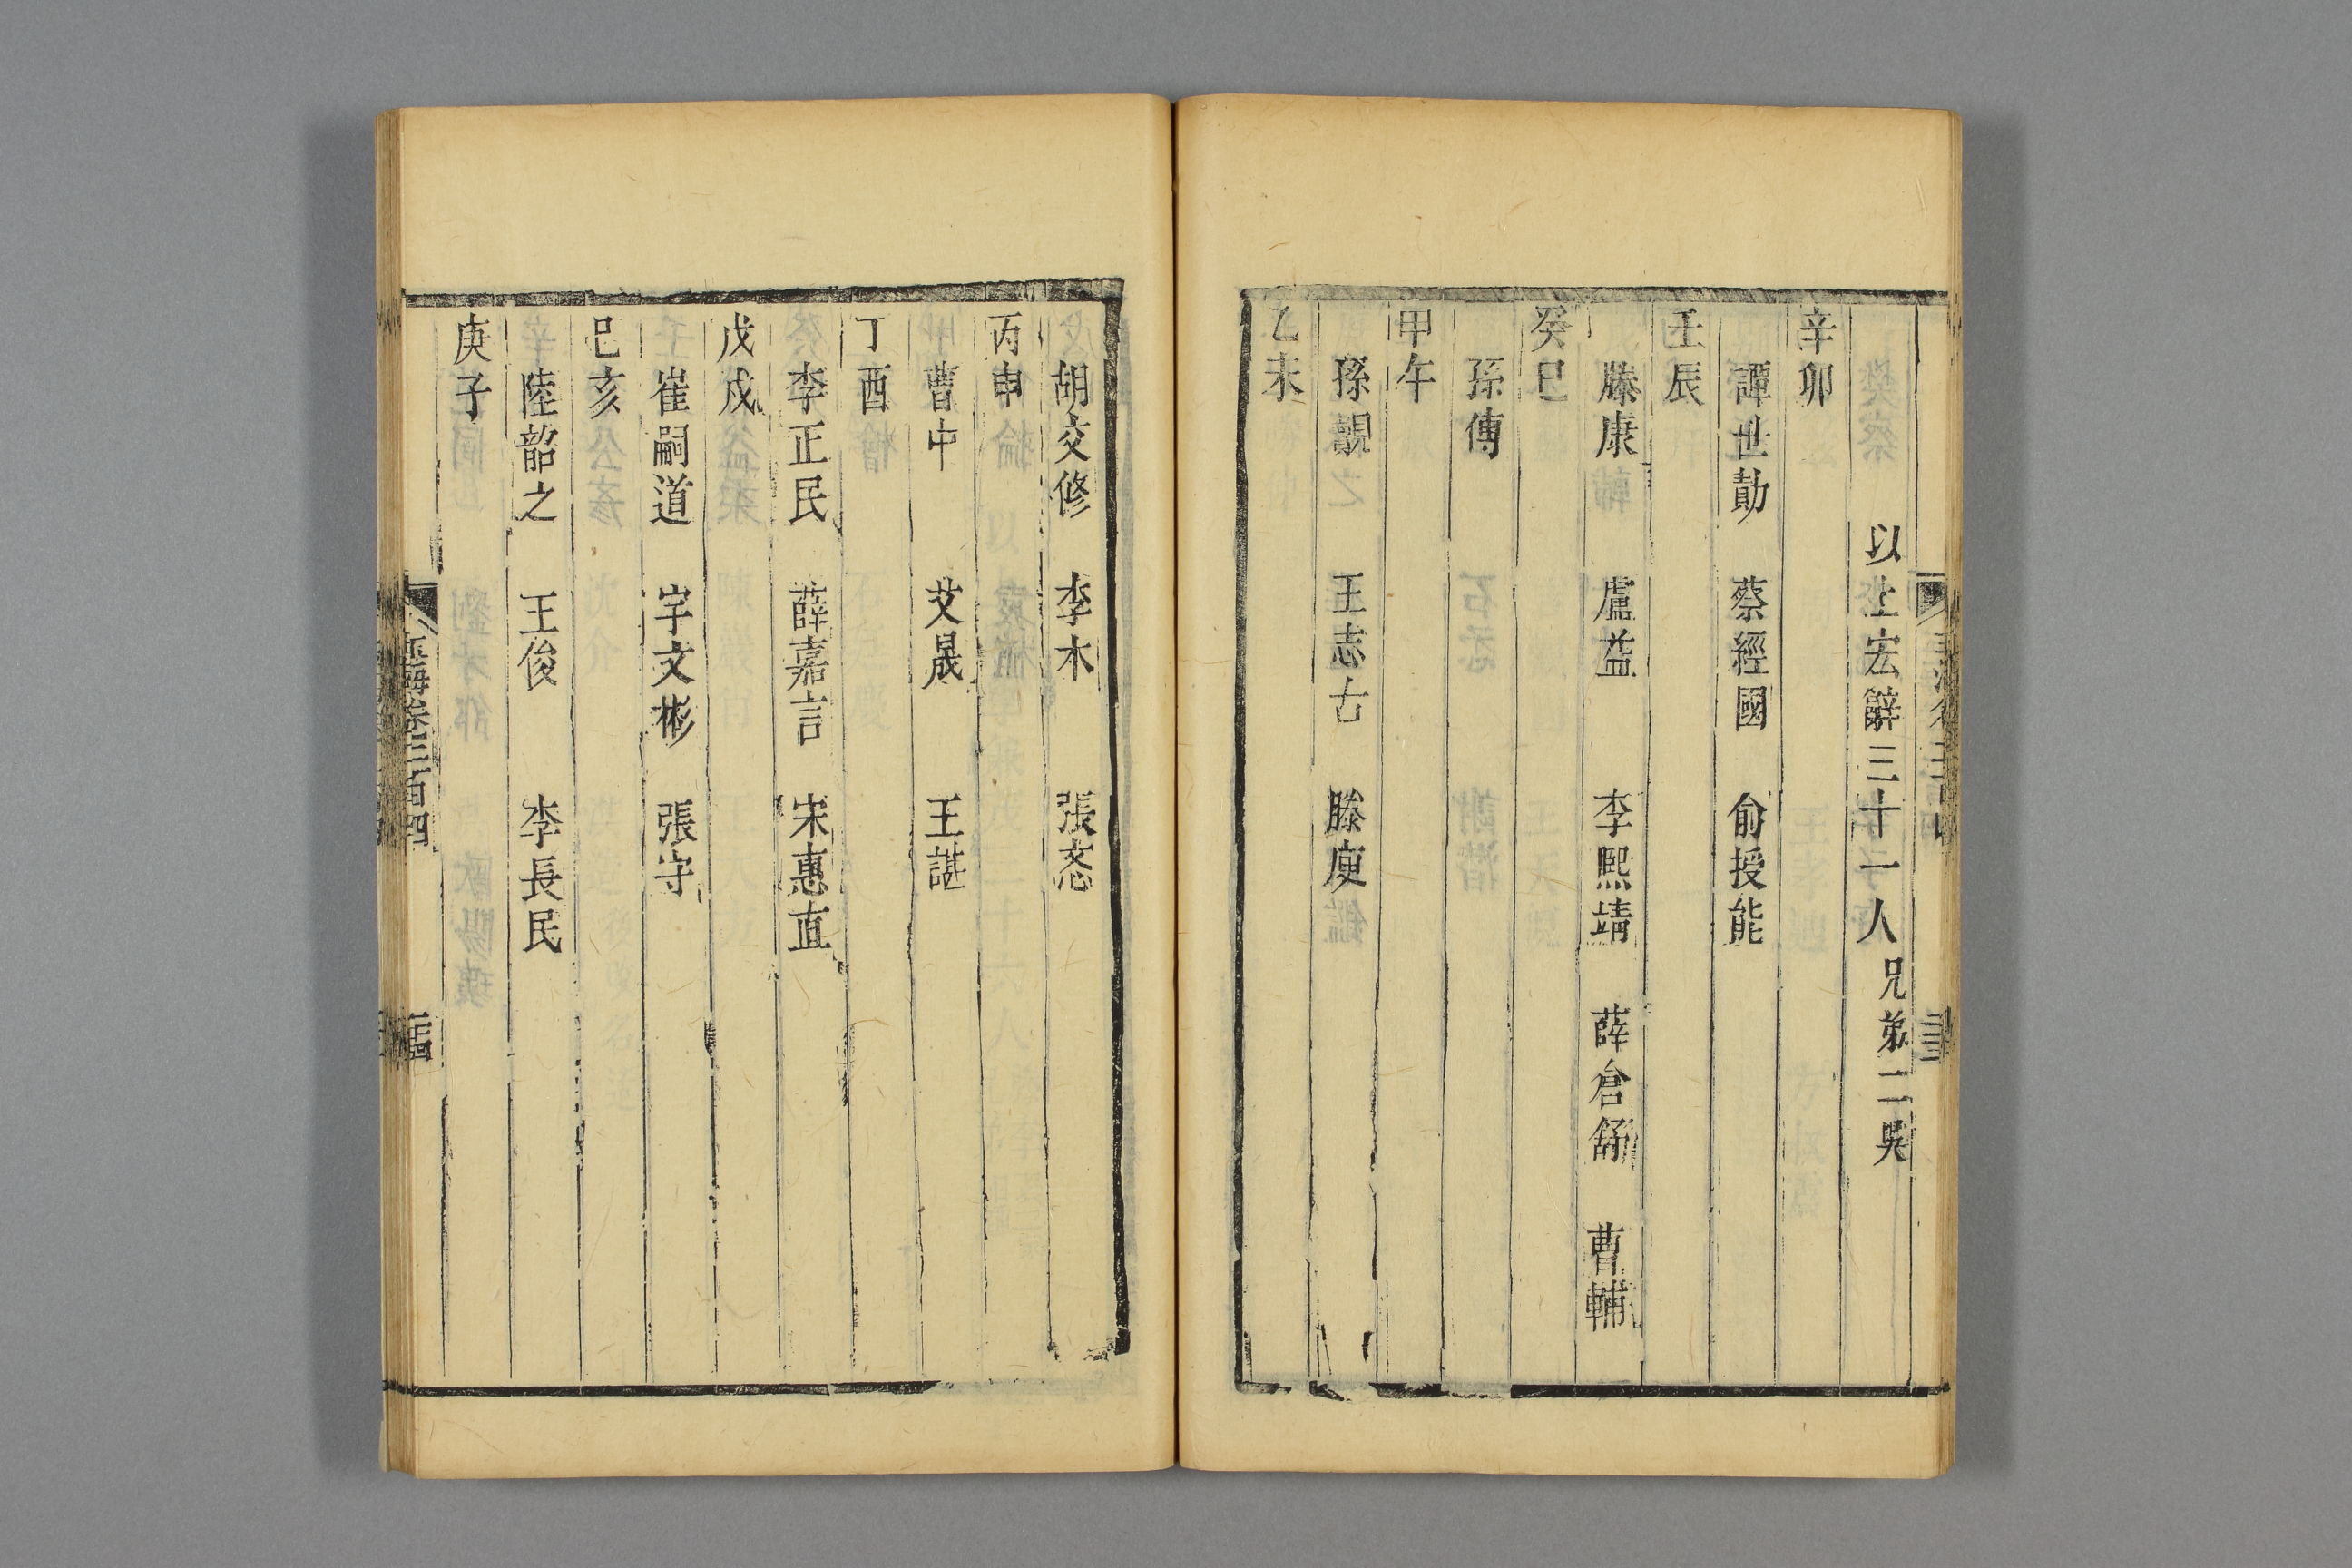 以上宏辭三十一人 兄弟二吳
辛卯
譚世勣 蔡經國 俞授能
壬辰
滕康 盧益 李熙靖 薛倉舒 曹輔
癸巳
孫傅
甲午
孫覿 王志古 滕庾
乙未
胡交修 李木 張忞
丙申
曹中 艾晟 王諶
丁酉
李正民 薛嘉言 宋惠直
戊戌
崔嗣道 宇文彬 張守
己亥
陸韶之 王俊 李長民
庚子
玉海卷二百四